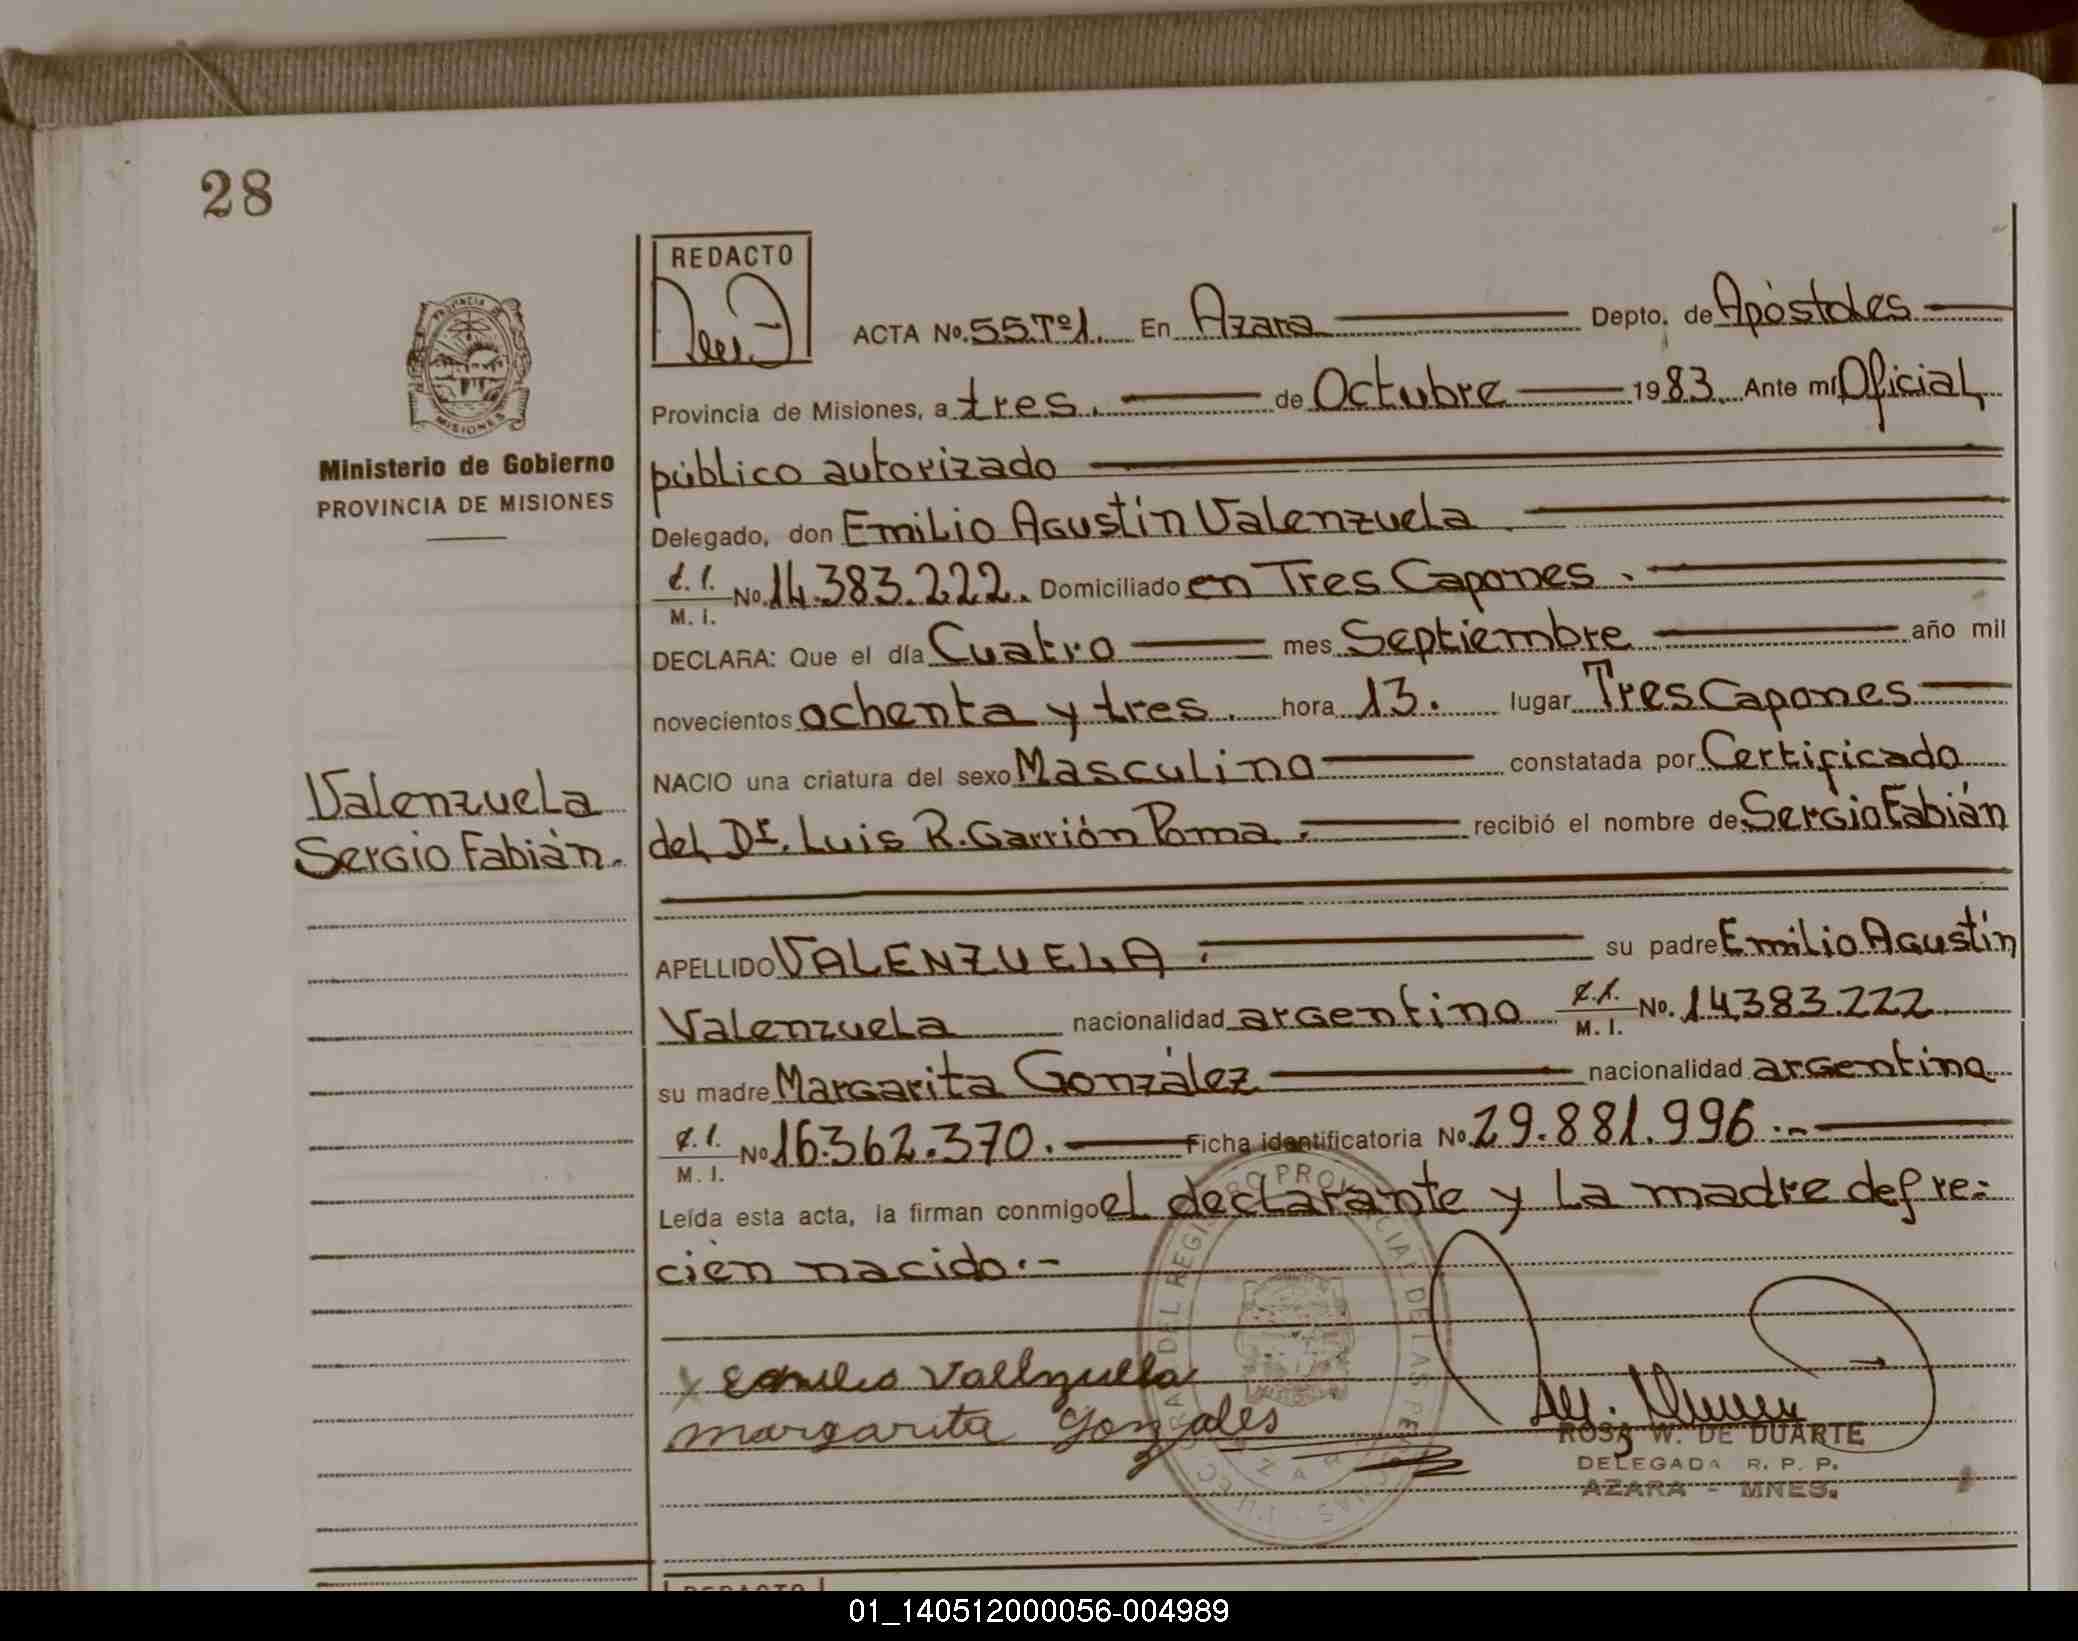 28
REDACTO
PROVINCIA DE
MISIONES
Ministerio de Gobierno
PROVINCIA DE MISIONES
Valenzuela
Sergio Fabián.
ACTA No. 55.Tº1. En Azara Depto. de Apóstoles
Provincia de Misiones, a tres. de Octubre 1983. Ante mí Oficial
público autorizado
Delegado, don Emilio Agustín Valenzuela
C. I.
M. I. No. 14.383.222. Domiciliado en Tres Capones.
DECLARA: Que el día Cuatro mes Septiembre año mil
novecientos ochenta y tres. hora 13. lugar Tres Capones
NACIO una criatura del sexo Masculino constatada por Certificado
del Dr. Luis R. Garrión Poma. recibió el nombre de Sergio Fabián
APELLIDO VALENZUELA. su padre Emilio Agustín
Valenzuela nacionalidad argentino C. I. M. I. No. 14.383.222
su madre Margarita González nacionalidad argentina
C. I.
M. I. No 16.362.370. Ficha identificatoria No. 29.881.996.-
Leída esta acta, la firman conmigo el declarante y la madre del re-
cien nacido.-
x Emilio Valenzuela
margarita gonzales
ROSA W. DE DUARTE
DELEGADA R. P. P.
AZARA - MNES.
REDACTO
01_140512000056-004989